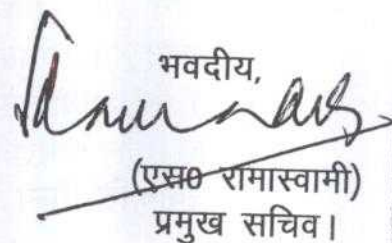 भवदीय,
(एस० रामास्वामी)
प्रमुख सचिव।